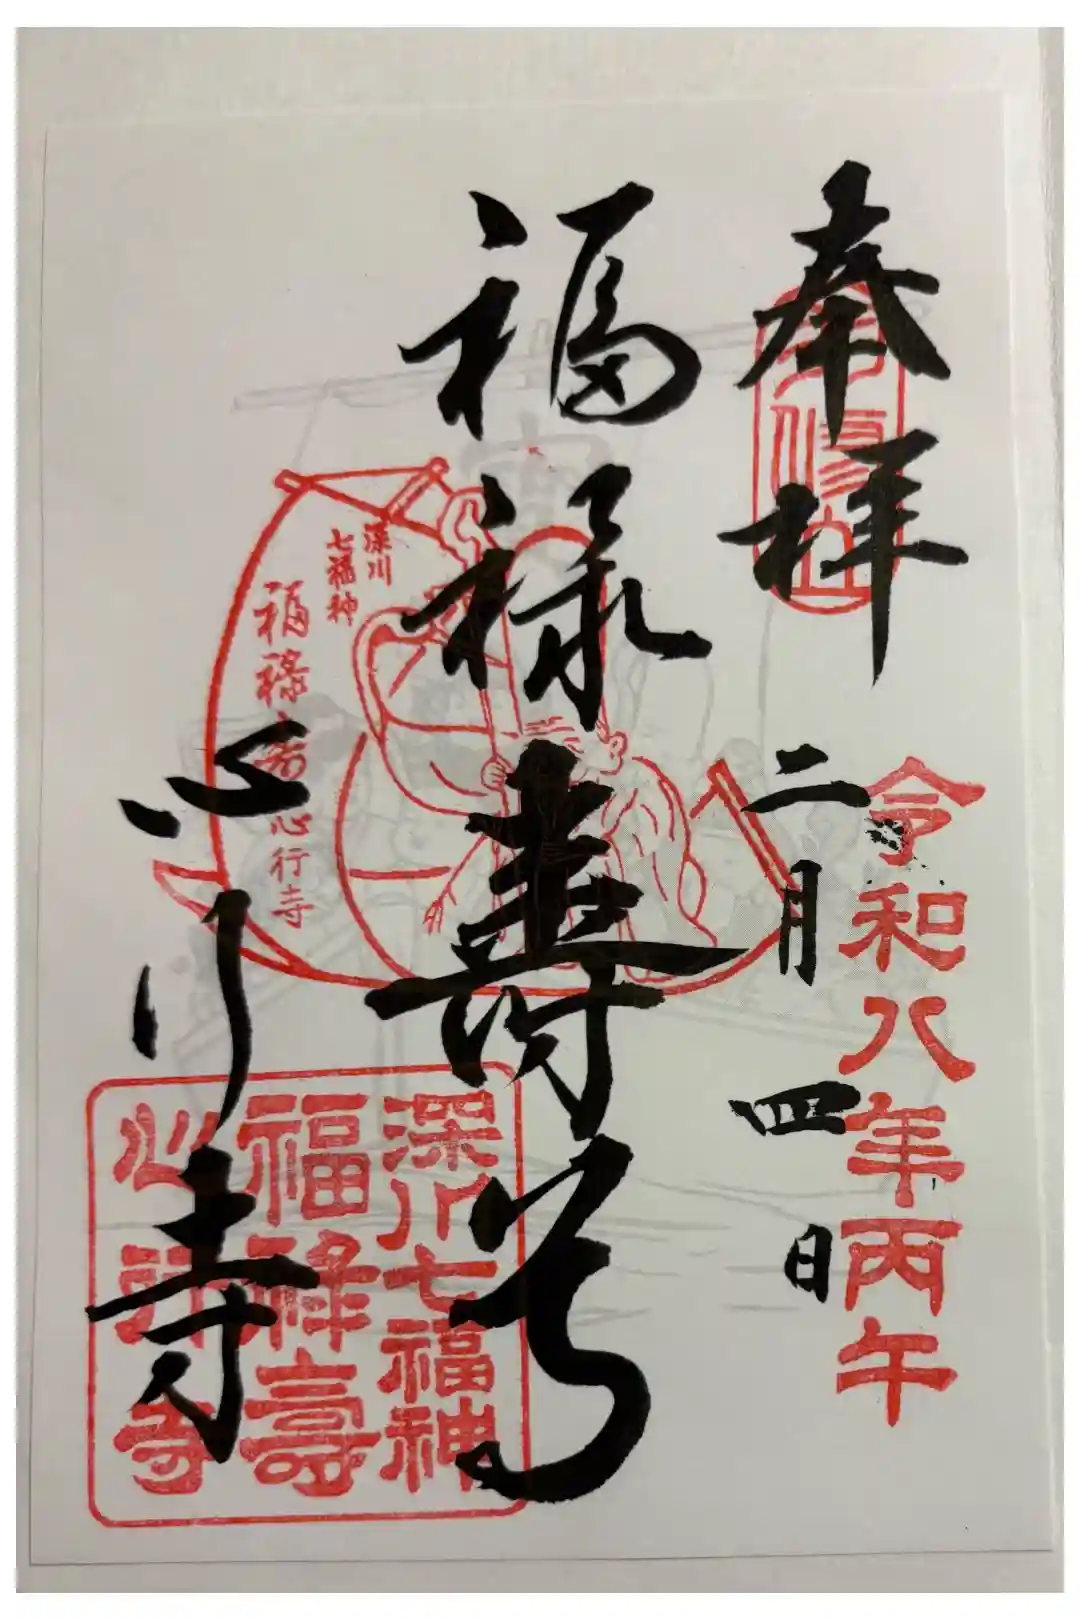 奉拝
令和八年丙午
二月四日
福禄寿尊
心行寺
深川
七福神
福禄寿 心行寺
深川七福神
福禄壽
心行寺